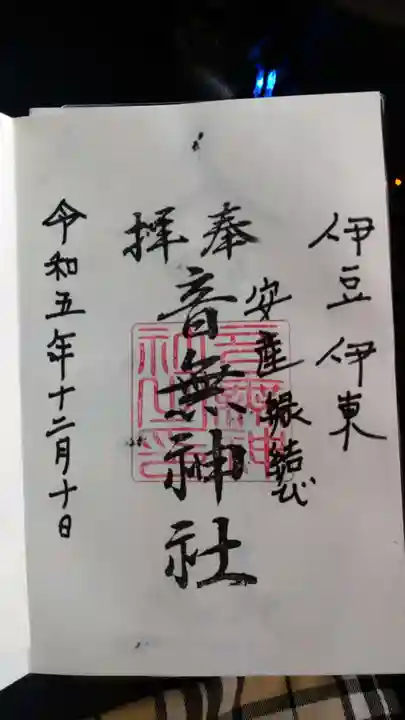 伊豆 伊東
安産 縁結び
奉拝
音無神社
音無神社之印
令和五年十二月十日